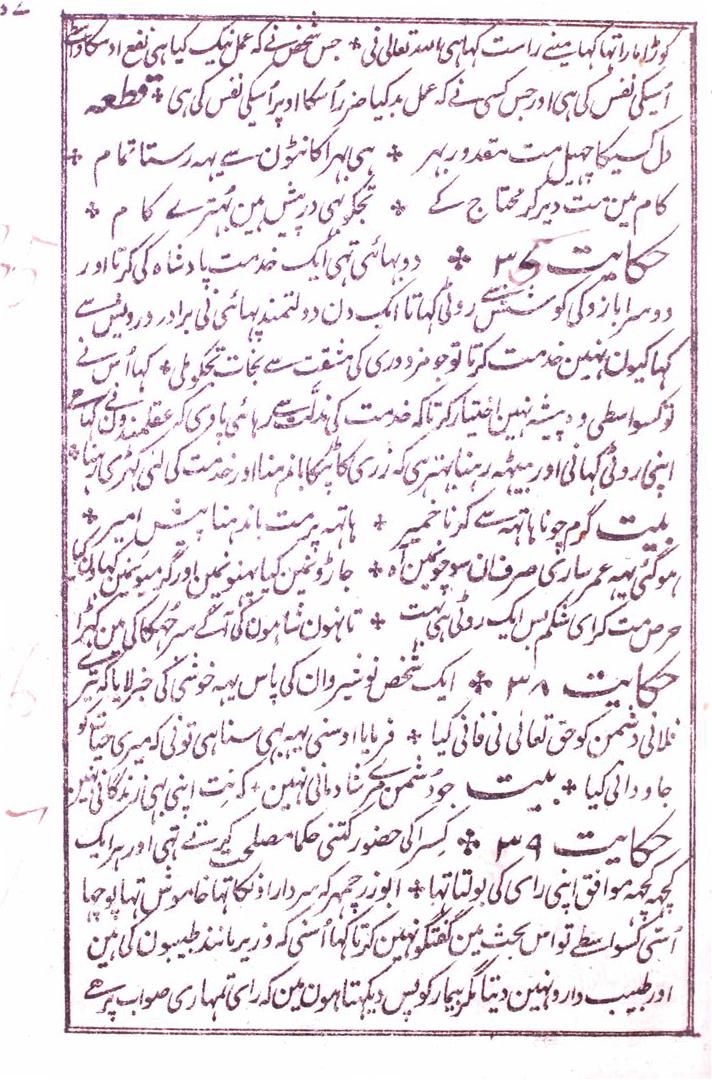 کوڑا مارا تہا کہا مینے راست کہا ہی اللہ تعالی نی ✤ جس شخص نے کہ عمل نیک کیا ہی نفع اوسکا واسطے
اُسیکی نفس کی ہی اور جس کسی نے کہ عمل بد کیا ضرر اُسکا اوپر اُسیکی نفس کی ہی ✤ قطعہ
دل کسیکا چہیل مت مقدور بہر ✤ ہی بہرا کانٹون سے یہہ رستا تمام ✤
کام مین مت دیر کر محتاج کے ✤ تجکو بہی درپیش ہین بہُترے کام ✤
حکایت ٣٧ ✤ دو بہائی تہی ایک خدمت پادشاہ کی کرتا اور
دوسرا بازو کی کوشش سے روٹی کہاتا ایک دن دولتمند بہائی نی برادر درویش سے
کہا کیون نہین خدمت کرتا تو جو مزدوری کی مشقت سے نجات تجکو ملی ✤ کہا اُس نے
تو کسواسطی وہ پیشہ نہین اختیار کرتا کہ خدمت کی ذلّت سے رہائی پاوی کہ عقلمندون نے کہا ہے
اپنی روٹی کہانی اور بیٹہہ رہنا بہتر ہی کہ زری کا پٹکا باندہنا اور خدمت کی لئی کہڑی رہنا ✤
بیت گرم چونا ہاتہہ سے کرنا خمیر ✤ ہاتہہ پر مت باندہنا پیش امیر ✤
ہو گئی یہہ عمر ساری صرف ان سوچونمین آہ ✤ جاڑونمین کیا پہنونمین اور گرمیونمین کہاون کیا
حرص مت کر ای شکم بس ایک روٹی ہی بہت ✤ تا نہون شاہون کی آگے سر جہکا کی مین کہڑا
حکایت ٣٨ ✤ ایک شخص نوشیروان کی پاس یہہ خوشی کی خبر لایا کہ تیرے
فلانی دشمن کو حق تعالی نی فانی کیا ✤ فرمایا اوسنی یہہ بہی سنا ہی تونی کہ میری حیات کو
جاودانی کیا ✤ بیت جو دشمن مرے شادمانی نہین ✤ کہ نت اپنی بہی زندگانی نہین
حکایت ٣٩ ✤ کِسرا کی حضور کتنی حکما مصلحت کرتے تہی اور ہر ایک
کچہہ کچہہ موافق اپنی رای کی بولتا تہا ✤ ابوزرجمہر کہ سردار اونکا تہا خاموش تہا پوچہا
اُسی کسواسطے تو اس بحث مین گفتگو نہین کرتا کہا اُسنی کہ وزیر مانند طبیبون کی ہین
اور طبیب دارو نہین دیتا مگر بیمار کو پس دیکہتا ہون مین کہ رای تمہاری صواب پر ہے